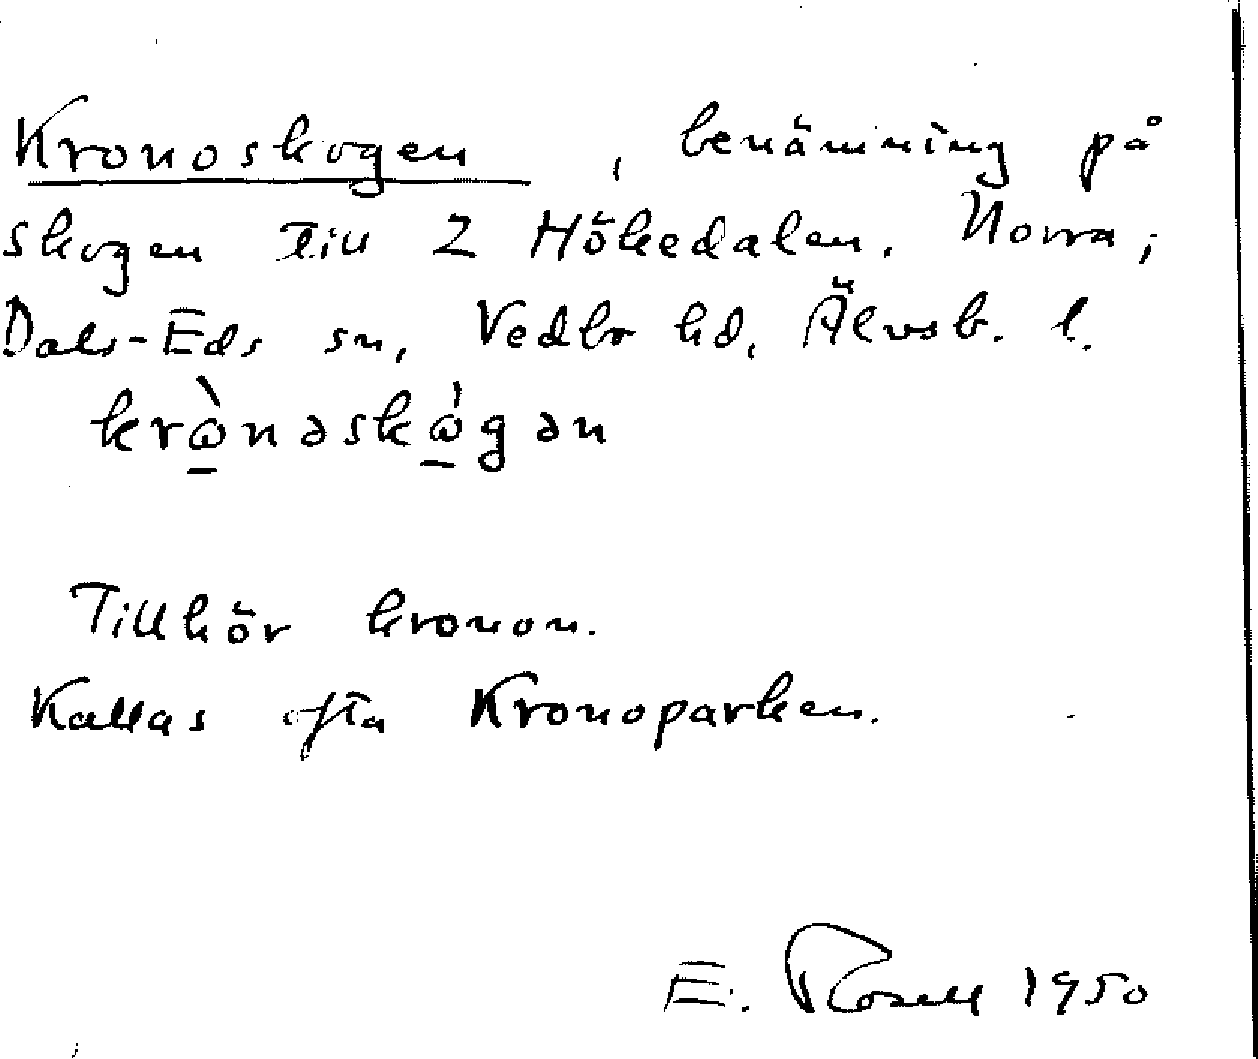 Kronoskogen, benämning på
skogen till 2 Hökedalen, Norra,
Dals-Eds sn, Vedbo hd, Älvsb. l.
krὼ̱nəskώ̱gən
Tillhör kronon.
Kallas ofta Kronoparken.
E. Rosell 1950